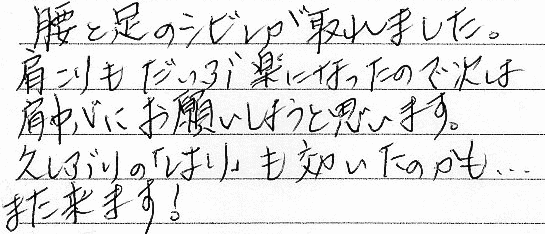 腰と足のシビレが取れました。
肩こりもだいぶ楽になったので次は
肩中心にお願いしようと思います。
久しぶりの「はり」も効いたのかも…
また来ます!